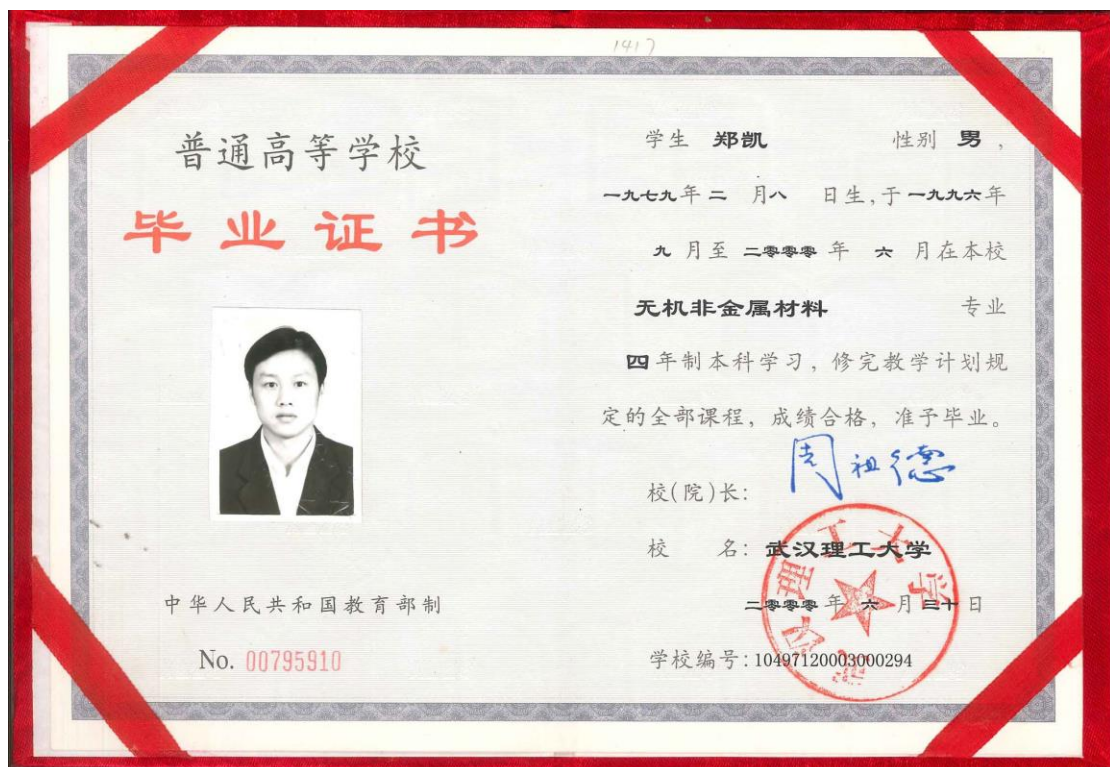 1417
普通高等学校
毕业证书
中华人民共和国教育部制
No. 00795910
学生 郑凯 性别 男,
一九七九年 二 月八 日生,于一九九六年
九 月至 二零零零 年 六 月在本校
无机非金属材料 专业
四年制本科学习,修完教学计划规
定的全部课程,成绩合格,准予毕业。
校(院)长: 周祖德
校 名: 武汉理工大学
二零零零 年 六 月 三十 日
学校编号: 10497120003000294
武汉理工大学